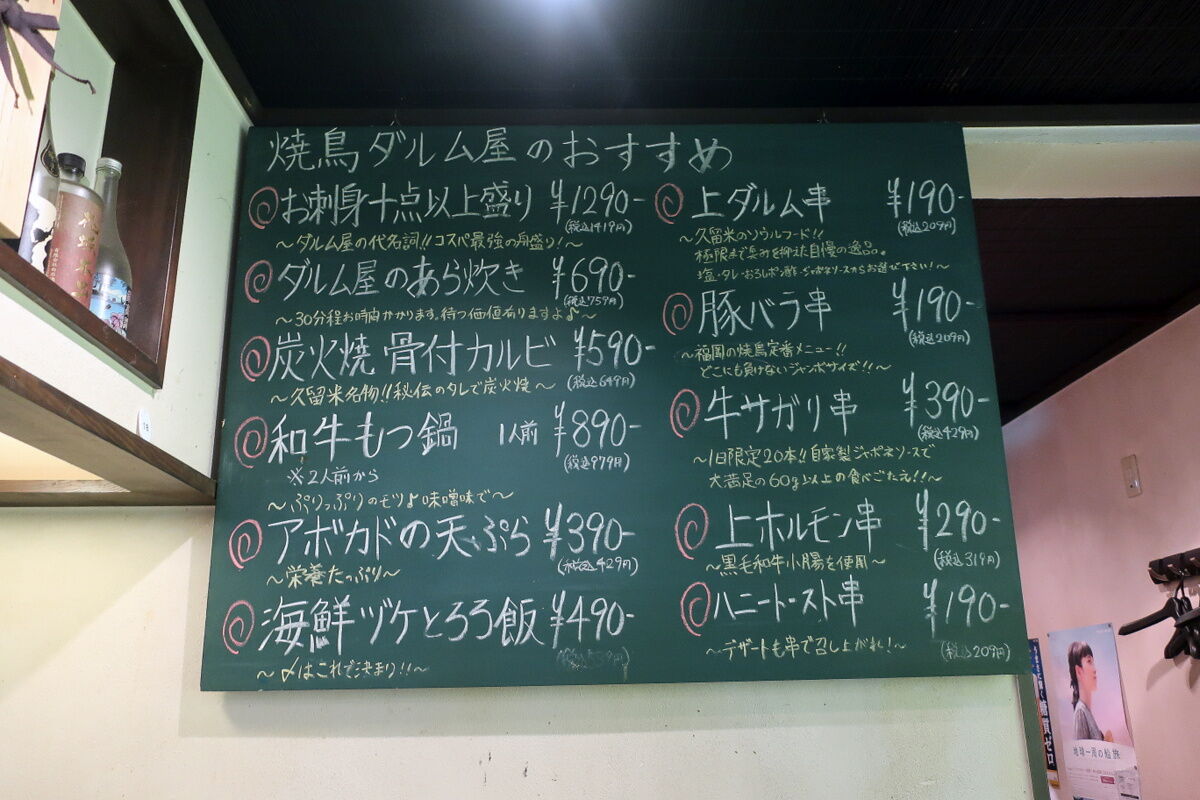 焼鳥ダルム屋のおすすめ
お刺身十点以上盛り ¥1290-
(税込1419円)
～ダルム屋の代名詞!!コスパ最強の舟盛り!～
ダルム屋のあら炊き ¥690-
(税込759円)
～30分程お時間かかります。待つ価値有りますよ♪～
炭火焼 骨付カルビ ¥590-
(税込649円)
～久留米名物!!秘伝のタレで炭火焼～
和牛もつ鍋 1人前 ¥890-
(税込979円)
※2人前から
～ぷりっぷりのモツ♪味噌味で～
アボカドの天ぷら ¥390-
(税込429円)
～栄養たっぷり～
海鮮ヅケとろろ飯 ¥490-
～〆はこれで決まり!!～
上ダルム串 ¥190-
(税込209円)
～久留米のソウルフード!!
極限まで臭みを抑えた自慢の逸品。
塩・タレ・おろしポン酢・ジャポネソースからお選び下さい!～
豚バラ串 ¥190-
(税込209円)
～福岡の焼鳥定番メニュー!!
どこにも負けないジャンボサイズ!!～
牛サガリ串 ¥390-
(税込429円)
～1日限定20本!!自家製ジャポネソースで
大満足の60g以上の食べごたえ!!～
上ホルモン串 ¥290-
(税込319円)
～黒毛和牛小腸を使用～
ハニートースト串 ¥190-
(税込209円)
～デザートも串で召し上がれ!～
糖質ゼロ
地球一周の船旅